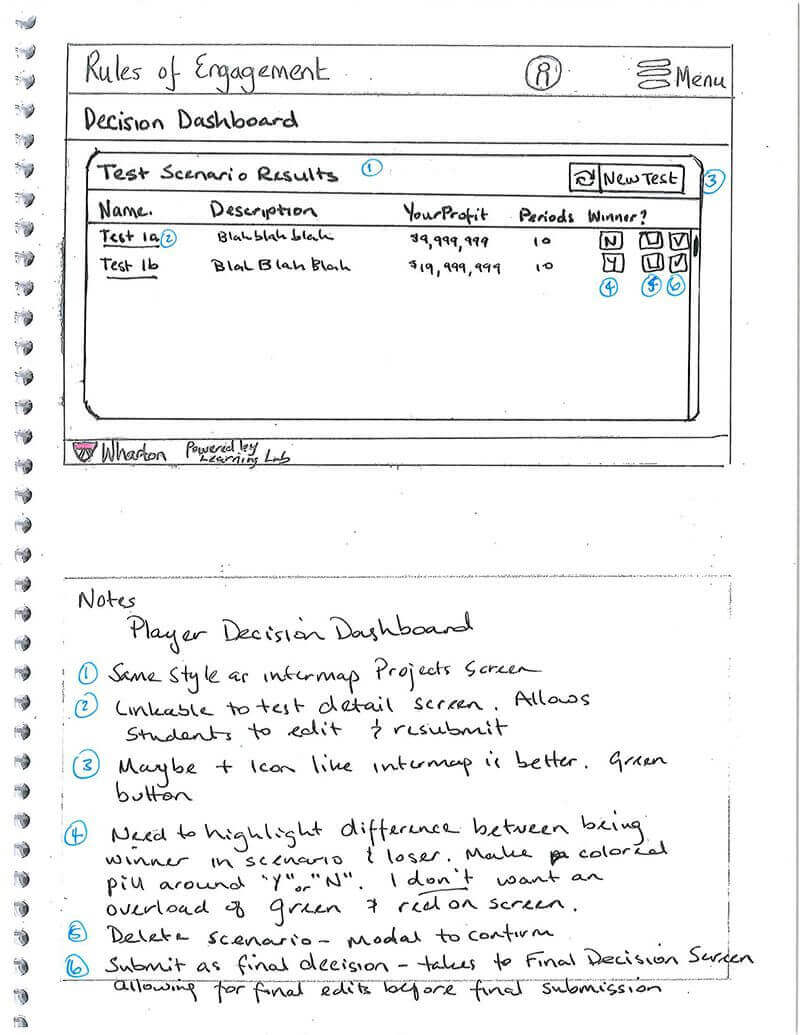 Rules of Engagement
Menu
Decision Dashboard
Test Scenario Results ①
New Test ③
Name. Description Your Profit Periods Winner?
Test 1a ② Blah blah blah $9,999,999 10 N
Test 1b Blah Blah Blah $19,999,999 10 Y
④ ⑤ ⑥
Wharton Powered by
Learning Lab
Notes
Player Decision Dashboard
① Same style as intermap Projects Screen
② Linkable to test detail screen. Allows
students to edit & resubmit
③ Maybe + icon like intermap is better. Green
button
④ Need to highlight difference between being
winner in scenario & loser. Make a colored
pill around "Y" or "N". I don't want an
overload of green & red on screen.
⑤ Delete scenario - modal to confirm
⑥ Submit as final decision - takes to Final Decision Screen
allowing for final edits before final submission